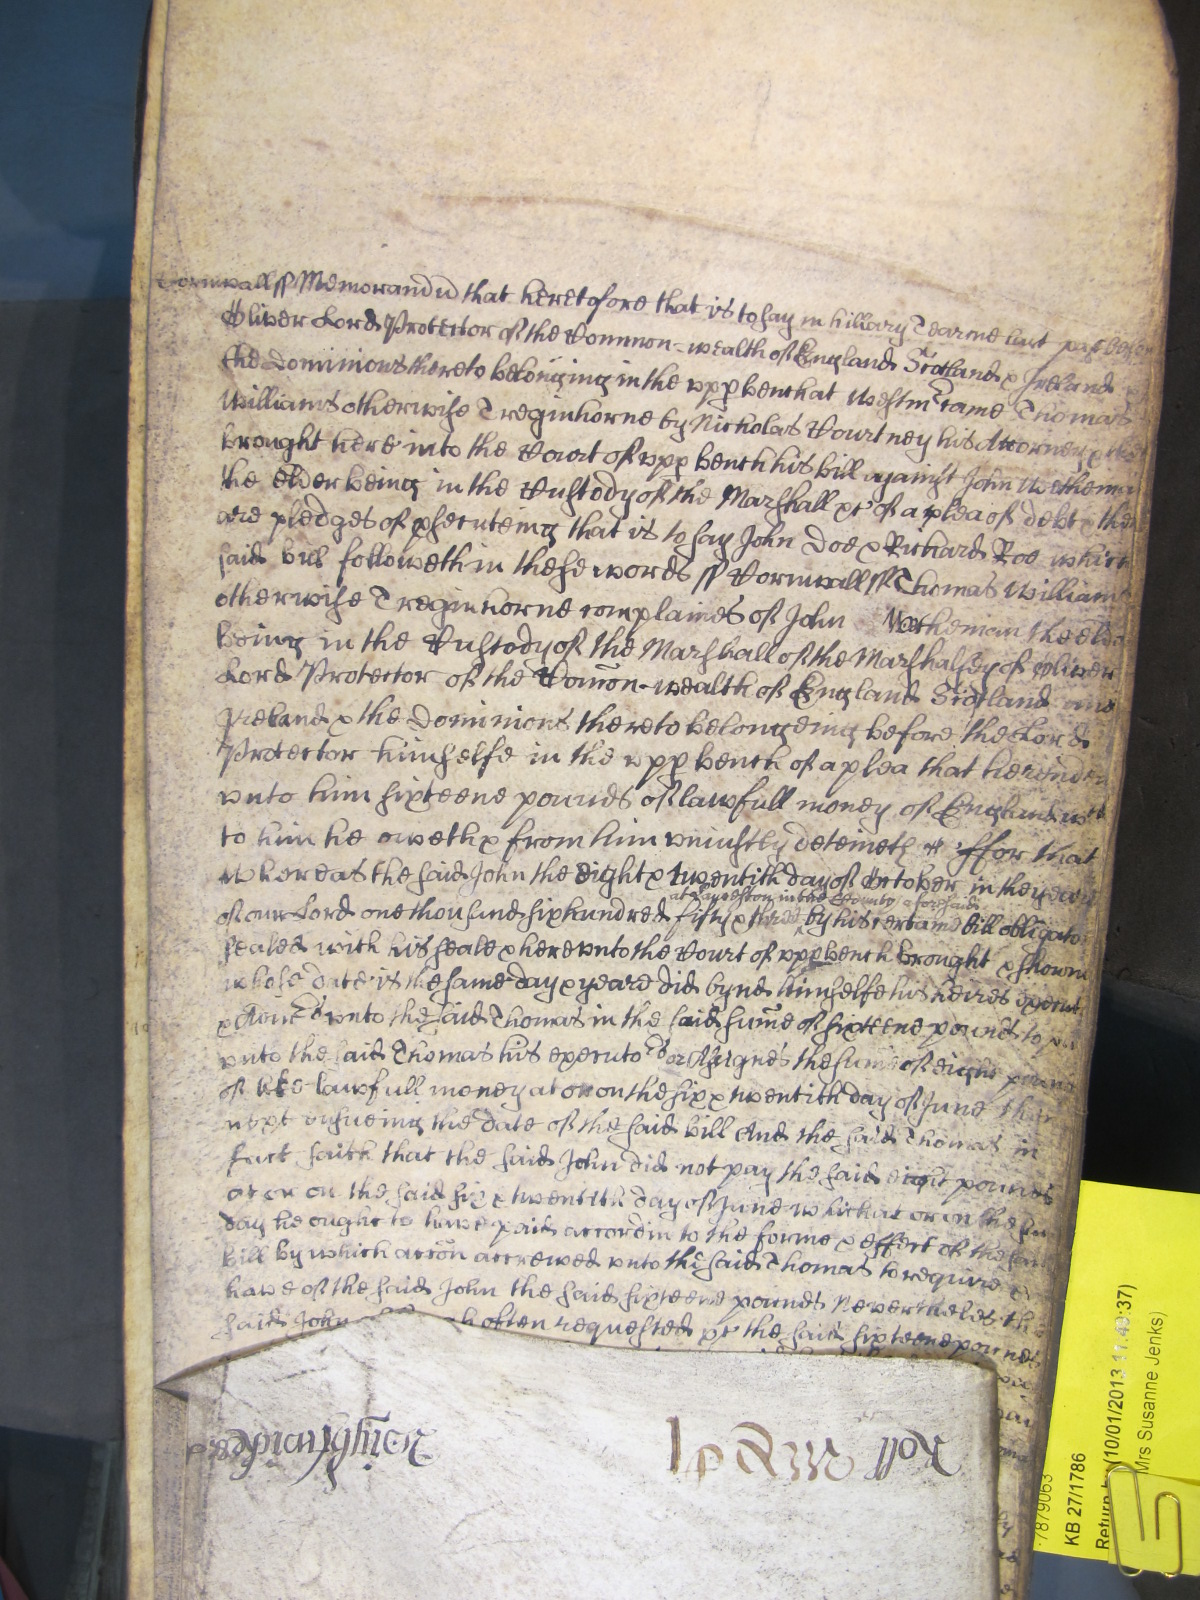 Cornwall ss Memorandu that heretofore that is to say in hillary Tearme last past before
Oliver Lord Protector of the Common-wealth of England Scotland & Ireland &
the dominions thereto belonging in the upp bench at Westmr came Thomas
Williams otherwise Treginhorne by Nicholas Courtney his Attorney &
brought here into the Court of upp bench his bill against John
the elder being in the Custody of the Marshall &c of a plea of debt & there
are pledges of psecuteing that is to say John Doe & Richard Roe which
said bill followeth in these words ss Cornwall ss Thomas Williams
otherwise Treginhorne complaines of John the elder
being in the Custody of the Marshall of the Marshalsey of Oliver
Lord Protector of the Comon-wealth of England Scotland and
Ireland & the Dominions thereto belongeing before the Lord
Protector himselfe in the upp bench of a plea that he render
unto him sixteene pounds of lawfull money of England wch
to him he oweth & from him uniustly deteineth ffor that
whereas the said John the eight & twentith day of October in the yeare
at in the County aforesaid
of our Lord one thousand six hundred fifty & three by his certaine bill obligato
sealed with his seale & here unto the Court of upp bench brought & shown
whose date is the same day & yeare did bynd himselfe his heires execut
& unto the said Thomas in the said sume of sixteene pounds to
unto the said Thomas his executors or Assignes the sume of eight pound
of like lawfull money at or on the six & twentith day of June then
next ensueing the date of the said bill And the said Thomas in
fact saith that the said John did not pay the said eight pounds
at or on the said six & twentith day of June which at or on the
day he ought to have paid accordin to the forme & effect of the said
bill by which accon accrewed unto the said Thomas to require &
have of the said John the said sixteene pounds Neverthelesse the
said John often requested &c the said sixteene pounds
Roll
KB 27/1786
Return by (10/01/2013 11:43:37)
Mrs Susanne Jenks)